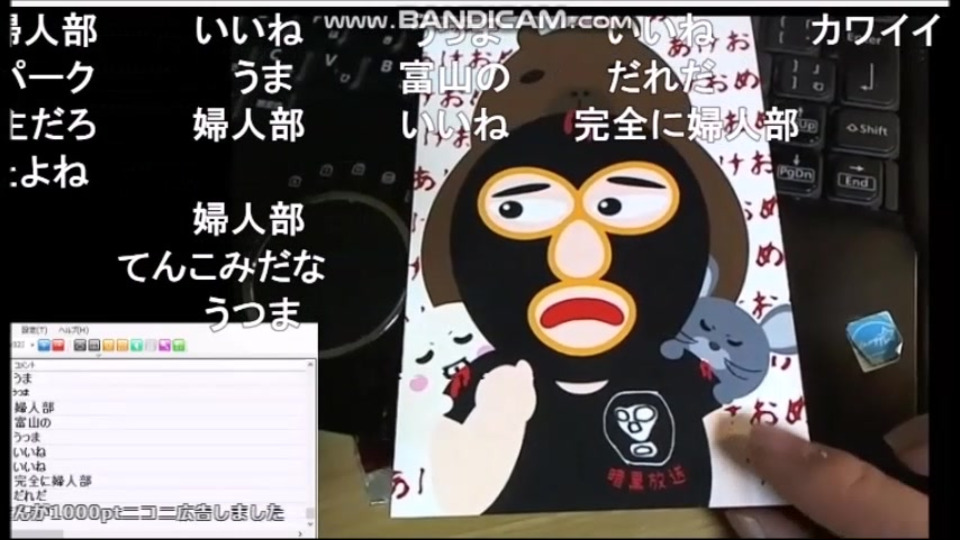 www.BANDICAM.com
婦人部 いいね うつま いいね カワイイ
パーク うま 富山の だれだ
主だろ 婦人部 いいね 完全に婦人部
よね
婦人部
てんこみだな
うつま
設定(T) ヘルプ(H)
コメント
うま
うつま
婦人部
富山の
うつま
いいね
いいね
完全に婦人部
だれだ
んが1000ptニコニ広告しました
あけおめ
暗黒放送
Enter
Shift
PgDn
End
C
V
B